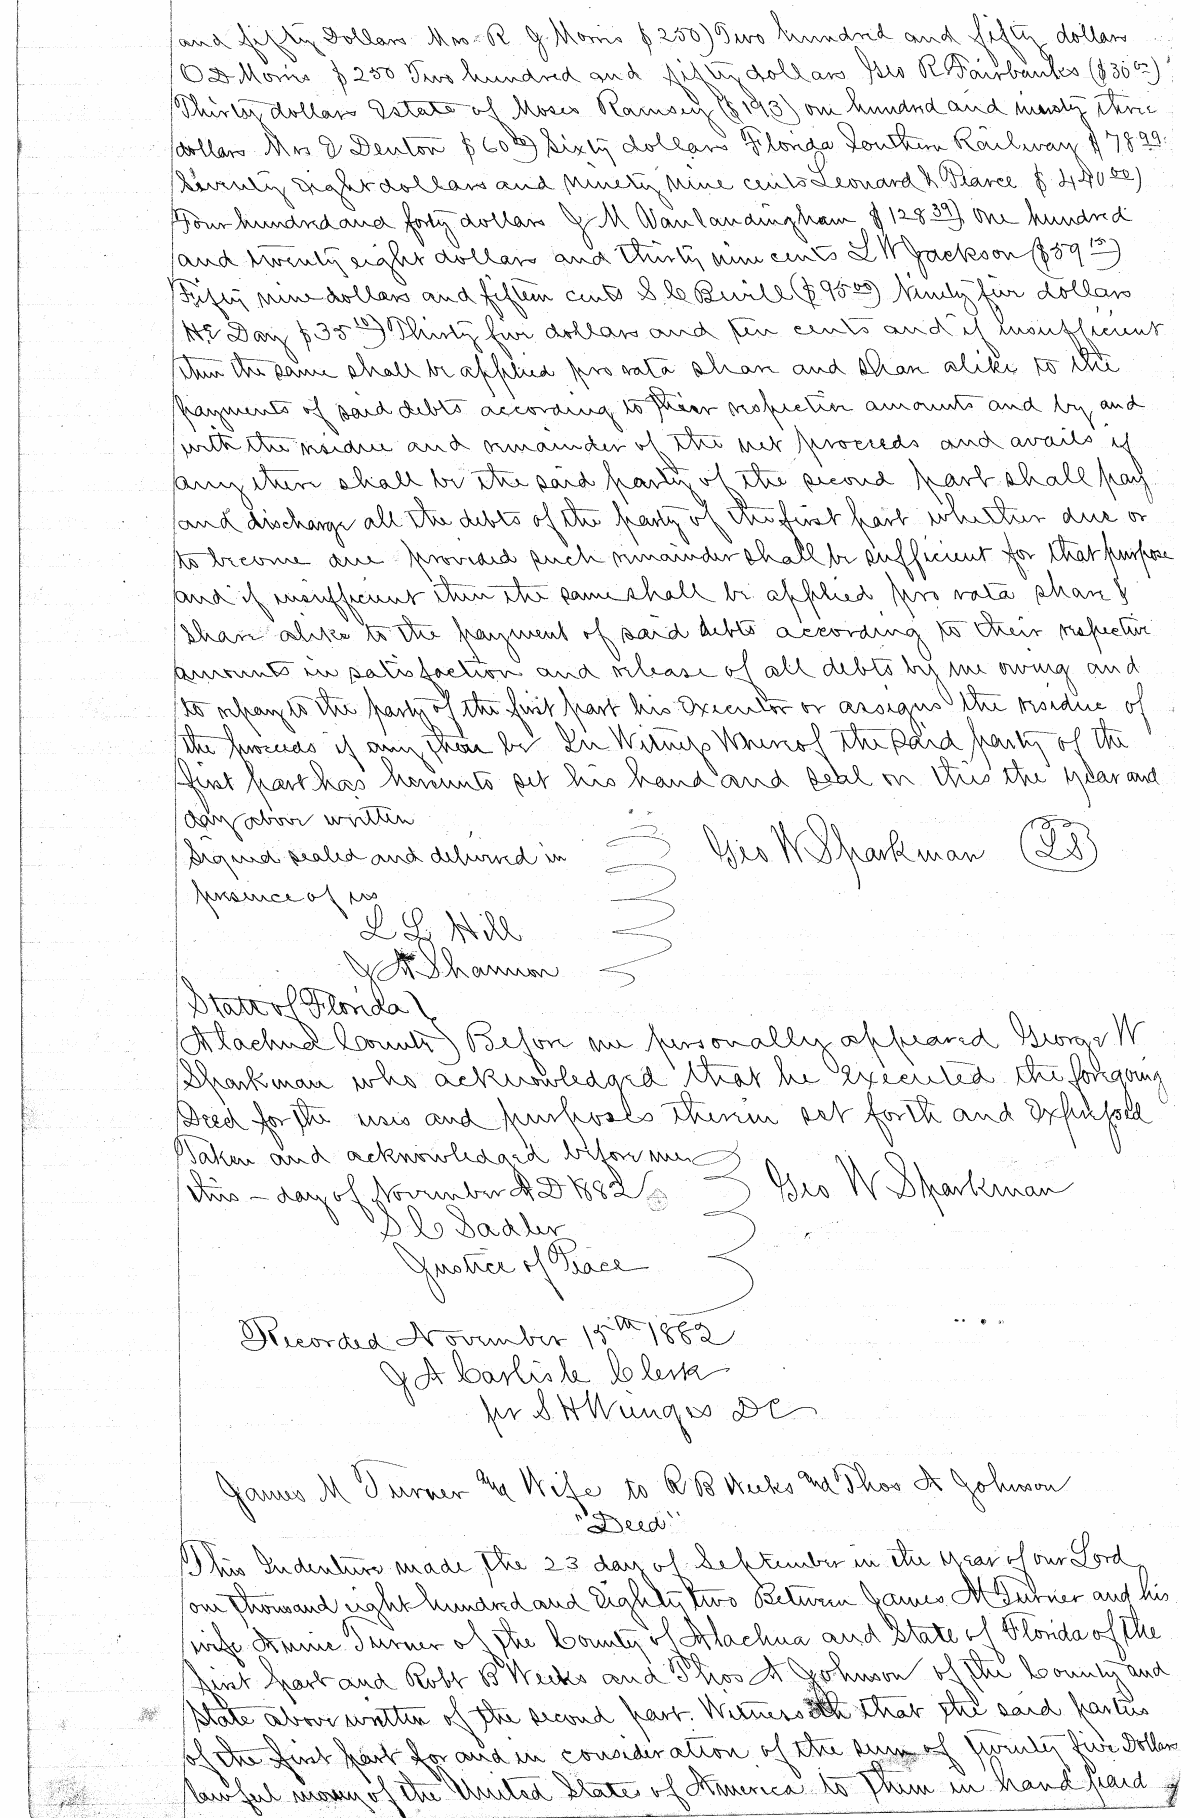 and fifty Dollars Mrs R G Morris $250) Two hundred and fifty dollars
O D Morris $250 Two hundred and fifty dollars Geo R Fairbanks ($30 00)
Thirty dollars Estate of Moses Ramsey ($193) one hundred and ninety three
dollars Mrs E Denton $60 00) Sixty dollars Florida Southern Railway $78 99
Seventy Eight dollars and ninety nine cents Leonard & Pearce $440 00)
Four hundred and forty dollars J M Vanlandingham $128 39) one hundred
and twenty eight dollars and thirty nine cents L W Jackson ($59 15)
Fifty nine dollars and fifteen cents S C Burill ($95 00) Ninety five dollars
Day $35 10) Thirty five dollars and ten cents and if insufficient
then the same shall be applied pro rata share and share alike to the
payments of said debts according to their respective amounts and by and
with the residue and remainder of the net proceeds and avails if
any there shall be the said party of the second part shall pay
and discharge all the debts of the party of the first part whether due or
to become due provided such remainder shall be sufficient for that purpose
and if insufficient then the same shall be applied pro rata share &
share alike to the payment of said debts according to their respective
amounts in satisfaction and release of all debts by me owing and
to repay to the party of the first part his Executor or assigns the residue of
the proceeds if any there be In Witness Whereof the said party of the
first part has hereunto set his hand and seal on this the year and
day above written
Signed sealed and delivered in
presence of us
Geo W Sparkman (LS)
L L Hill
J A Shannon
State of Florida
Alachua County) Before me personally appeared George W
Sparkman who acknowledged that he executed the foregoing
Deed for the uses and purposes therein set forth and Expressed
Taken and acknowledged before me
this – day of November A D 1882
Geo W Sparkman
S C Sadler
Justice of Peace
Recorded November 15th 1882
J A Carlisle Clerk
per S H Wienges DC
James M Turner and Wife to R B Weeks and Thos A Johnson
"Deed"
This Indenture made the 23 day of September in the year of our Lord
one thousand eight hundred and Eighty two Between James M Turner and his
wife Annie Turner of the County of Alachua and State of Florida of the
first part and Robt B Weeks and Thos A Johnson of the County and
State above written of the second part. Witnesseth that the said parties
of the first part for and in consideration of the sum of Twenty five Dollars
lawful money of the United State of America to them in hand paid